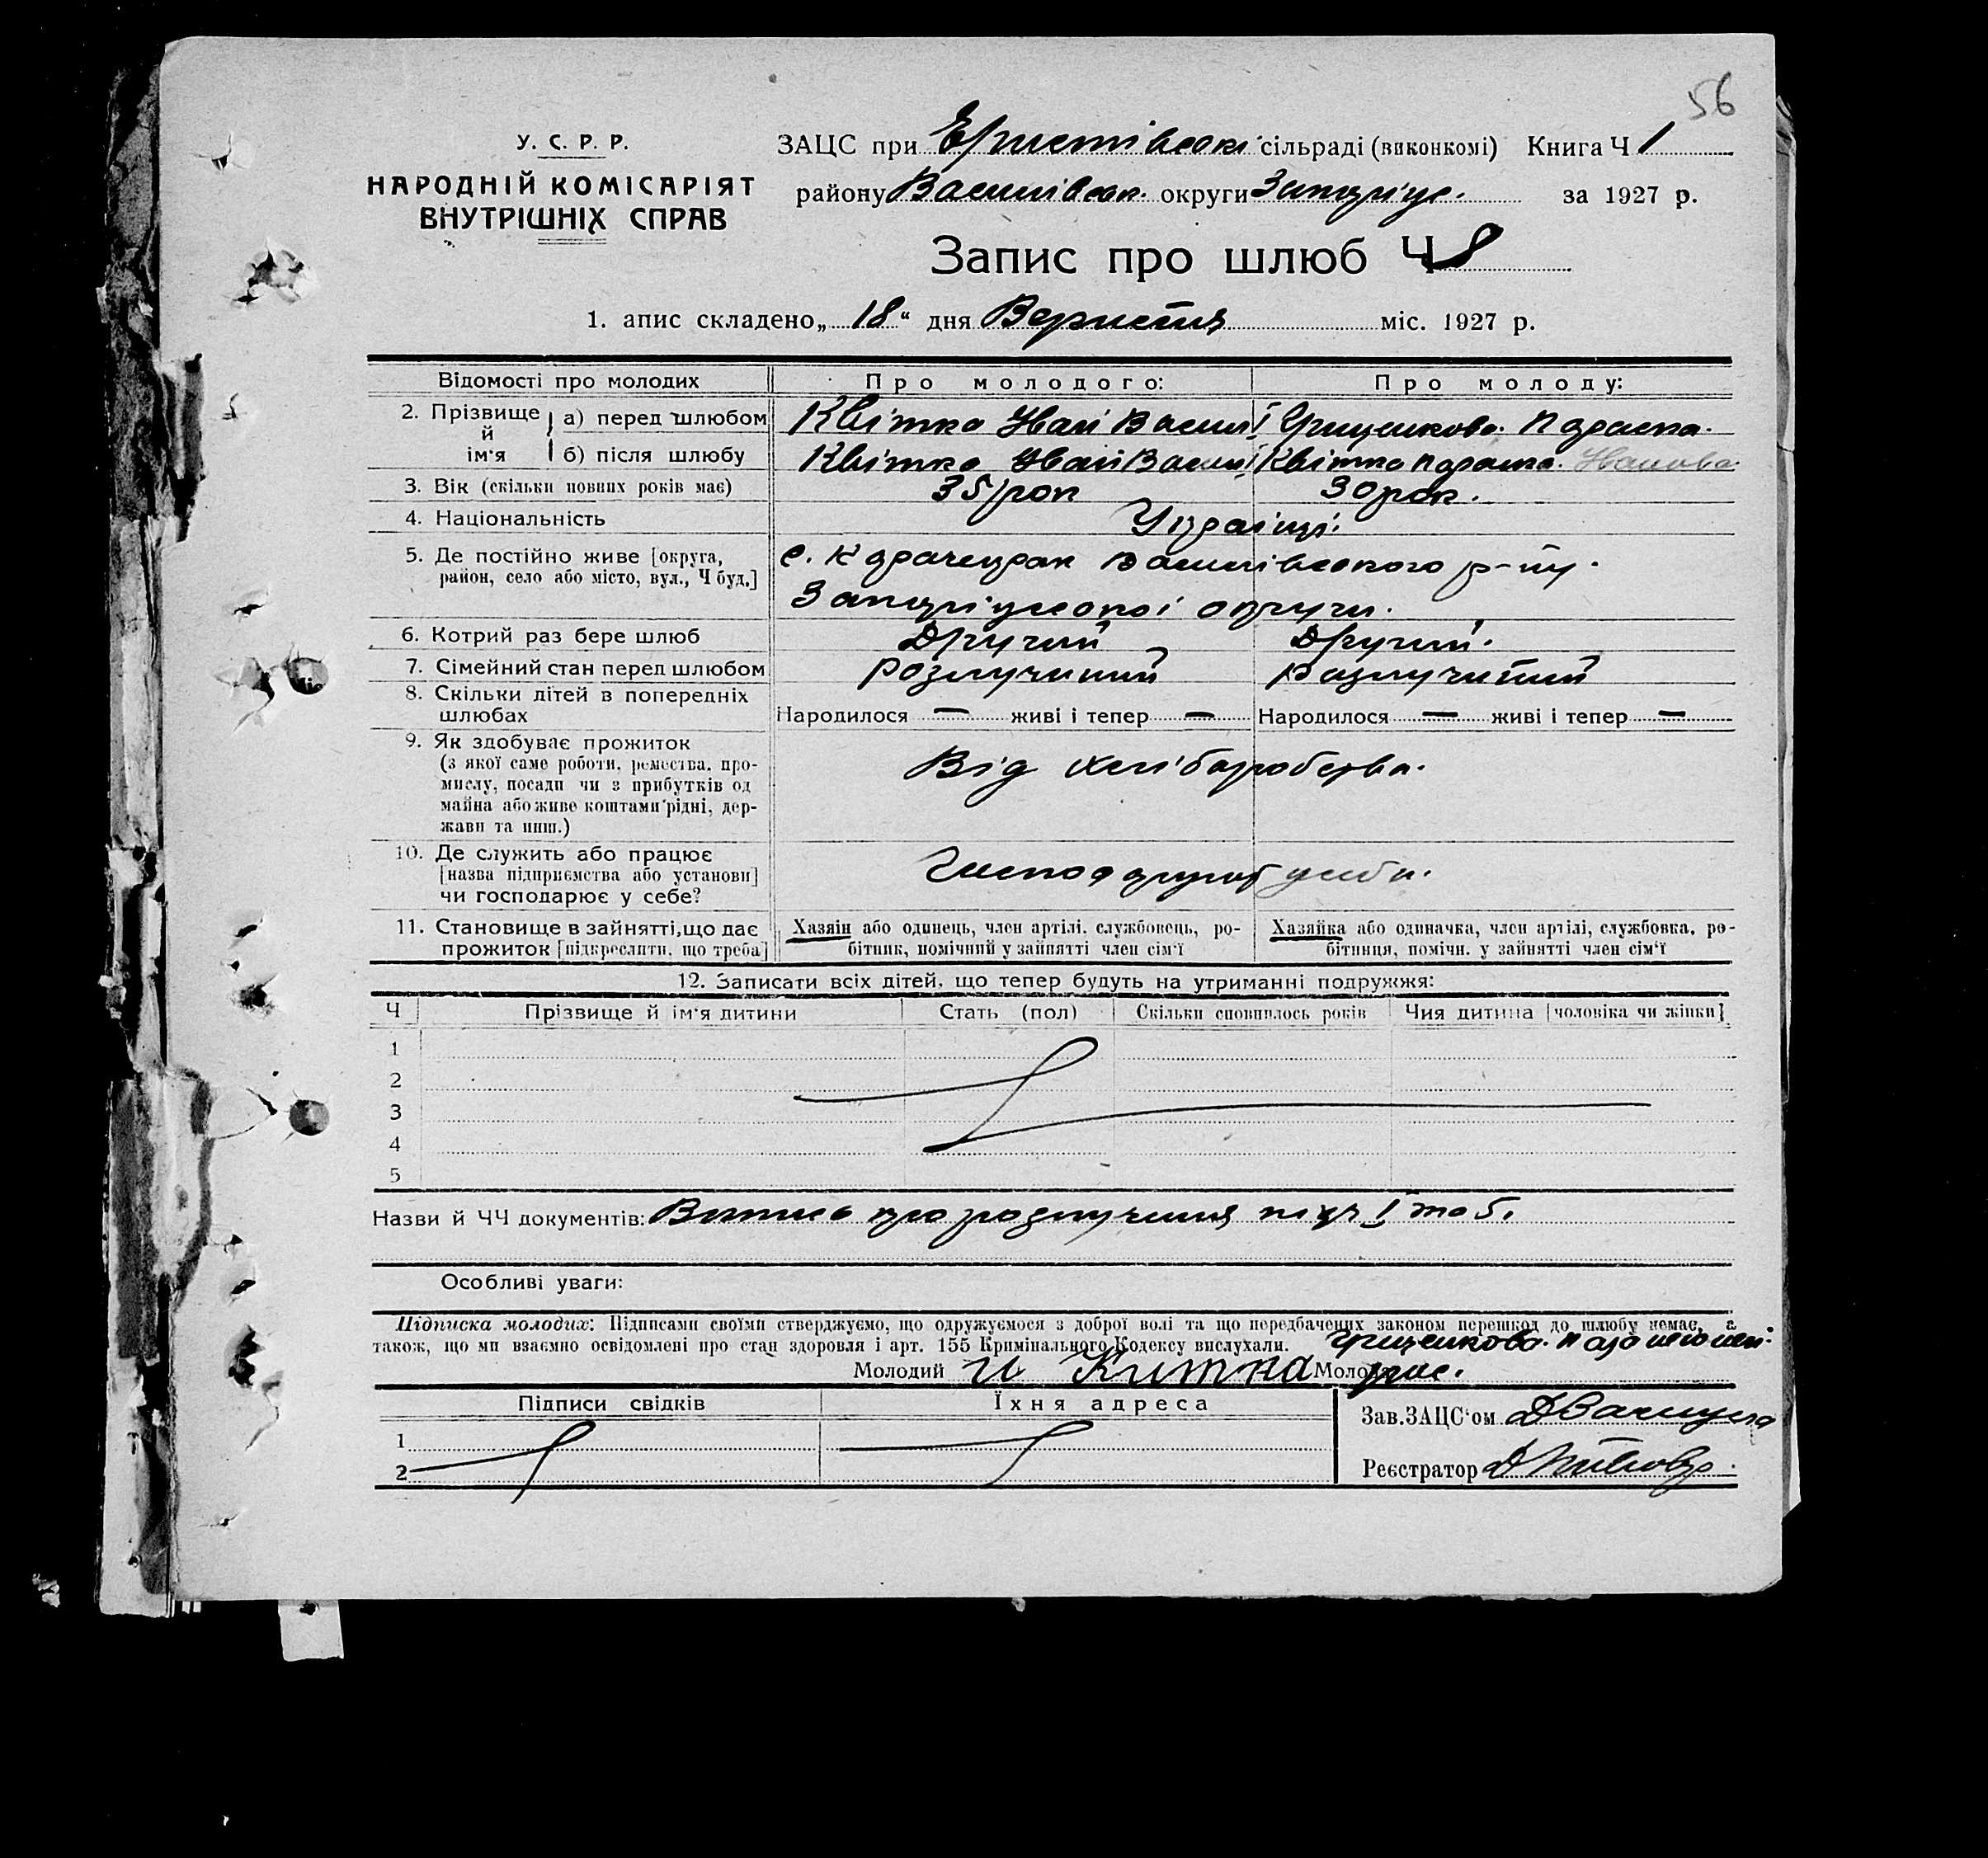 56
У. С. Р. Р.
НАРОДНІЙ КОМІСАРІЯТ
ВНУТРІШНІХ СПРАВ
ЗАЦС при Еристівські сільраді (виконкомі) Книга Ч 1
району Василівськ. округи Запоріж. за 1927 р.
Запис про шлюб Ч 8
1. апис складено „ 18 “ дня Вересня міс. 1927 р.
Відомості про молодих
Про молодого:
Про молоду:
2. Прізвище й ім'я
а) перед шлюбом
Квітка Іван Васил
Грищенкова Параска.
б) після шлюбу
Квітка Іван Васил
Квітка Параска. Іванова
3. Вік (скільки повних років має)
35 рок
30 рок.
4. Національність
Українці.
5. Де постійно живе [округа,
район, село або місто, вул., Ч буд.]
с. Карачекрак Василівського р-ну.
Запоріжської округи.
6. Котрий раз бере шлюб
Другий
Другий.
7. Сімейний стан перед шлюбом
розлучиний
разлучиний
8. Скільки дітей в попередніх
шлюбах
Народилося — живі і тепер —
Народилося — живі і тепер —
9. Як здобуває прожиток
(з якої саме роботи, ремества, про-
мислу, посади чи з прибутків од
майна або живе коштами рідні, дер-
жави та инш.)
Від хліборобства.
10. Де служить або працює
[назва підприємства або установи]
чи господарює у себе?
у себе.
11. Становище в зайнятті, що дає
прожиток [підкреслити, що треба]
Хазяїн або одинець, член артілі, службовець, ро-
бітник, помічний у зайнятті член сім'ї
Хазяйка або одиначка, член артілі, службовка, ро-
бітниця, помічн. у зайнятті член сім'ї
12. Записати всіх дітей, що тепер будуть на утриманні подружжя:
Ч
Прізвище й ім'я дитини
Стать (пол)
Скільки сповнилось років
Чия дитина [чоловіка чи жінки]
1
2
3
4
5
Назви й ЧЧ документів: Витис про розлучення під ч 1 та 5.
Особливі уваги:
Підписка молодих: Підписами своїми стверджуємо, що одружуємося з доброї волі та що передбачених законом перешкод до шлюбу немає, а
також, що ми взаємно освідомлені про стан здоровля і арт. 155 Кримінального Кодексу вислухали.
Грищенкова
Молодий И Китка Молода
Підписи свідків
Їхня адреса
1
2
Зав. ЗАЦС'ом
Реєстратор